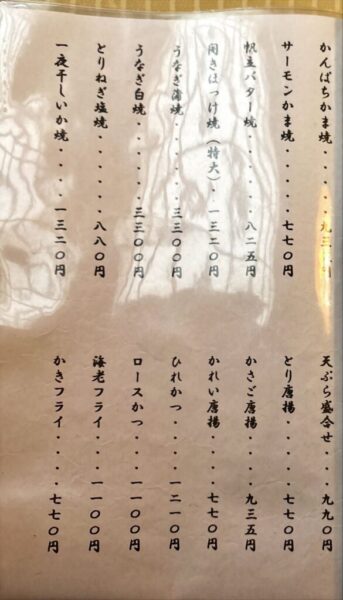 かんぱちかま焼・・・・九三 円
サーモンかま焼・・・・・七七〇円
帆立バター焼・・・・・八二五円
開きほっけ焼（特大）・一三二〇円
うなぎ蒲焼・・・・・三三〇〇円
うなぎ白焼・・・・・三三〇〇円
とりねぎ塩焼・・・・・八八〇円
一夜干しいか焼・・・・一三二〇円
天ぷら盛合せ・・・九九〇円
とり唐揚・・・・・七七〇円
かさご唐揚・・・・九三五円
かれい唐揚・・・・七七〇円
ひれかつ・・・・一二一〇円
ロースかつ・・・一一〇〇円
海老フライ・・・一一〇〇円
かきフライ・・・・七七〇円